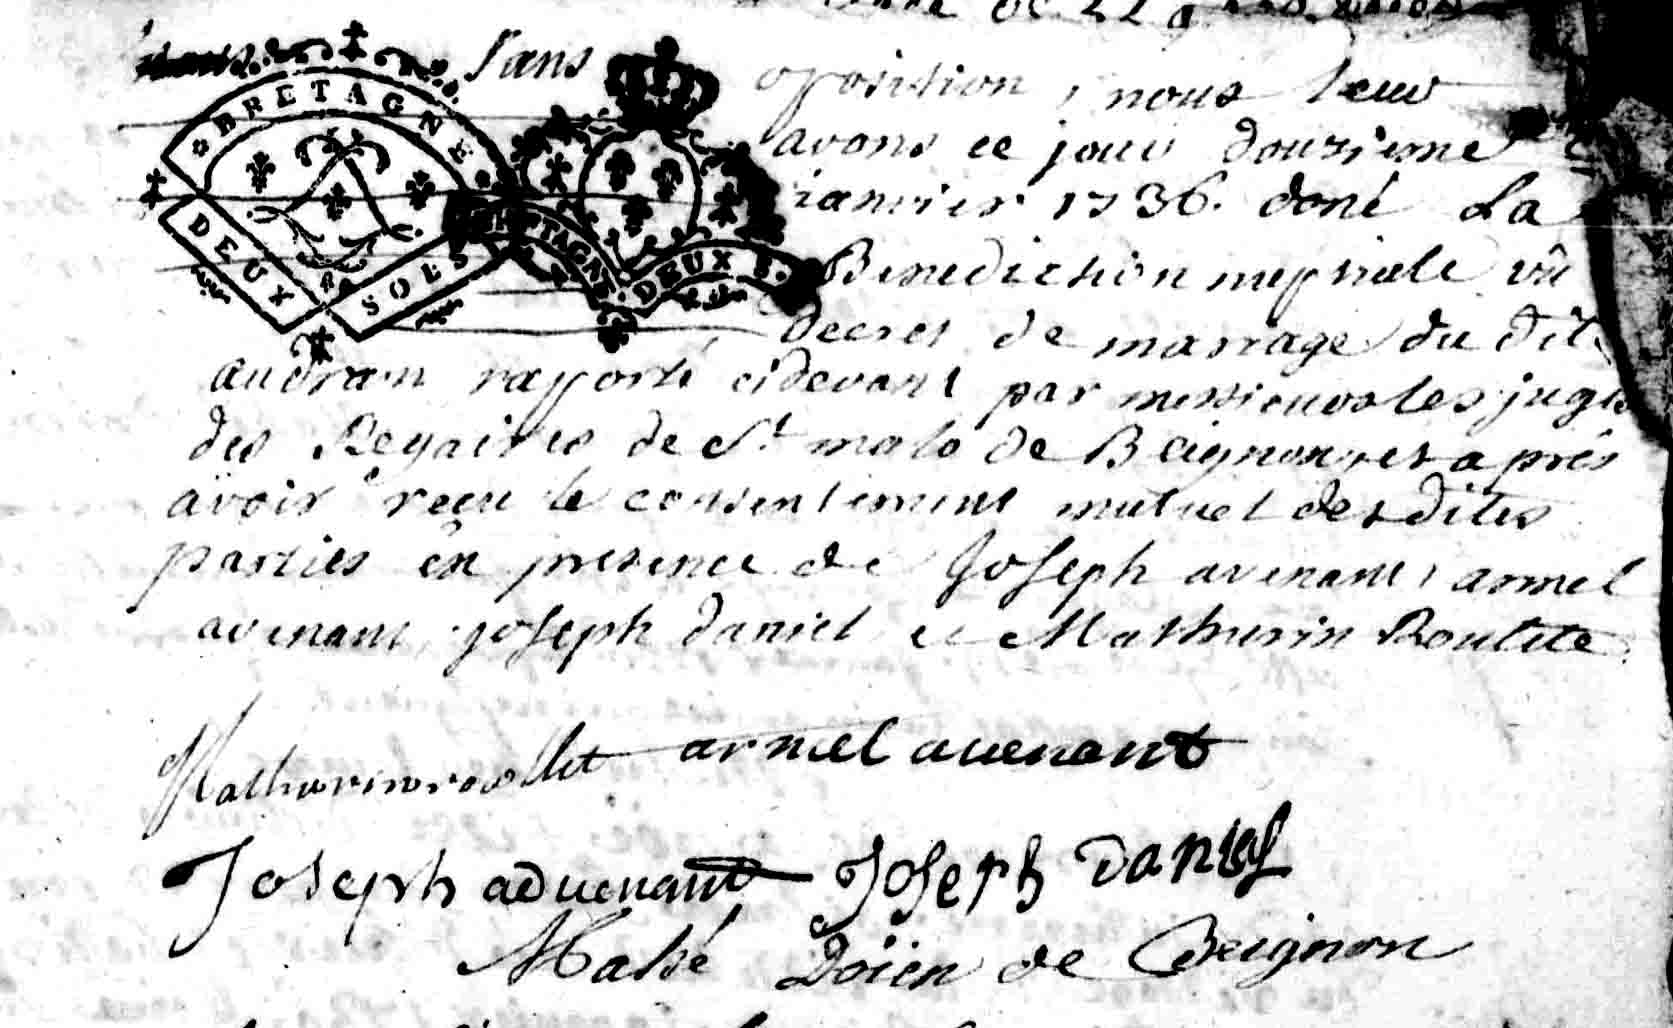 sans oposition, nous leur
BRETAGNE
DEUX SOLS
BRETAGNE. DEUX S.
avons ce jour douzieme
janvier 1736. doné La
Benediction nuptiale vû
decret de mariage du dit
audran raporté cidevant par messieurs les juges
des Regaires de St malo de Beignon, et aprés
avoir reçu le consentiment mutuel desdites
parties en presence de Joseph avenant, armel
avenant, joseph daniel et Mathurin Roulite
Mathurin roollet armel auenant
Joseph aduenant Joseph Daniel
Mahé Doien de Beignon